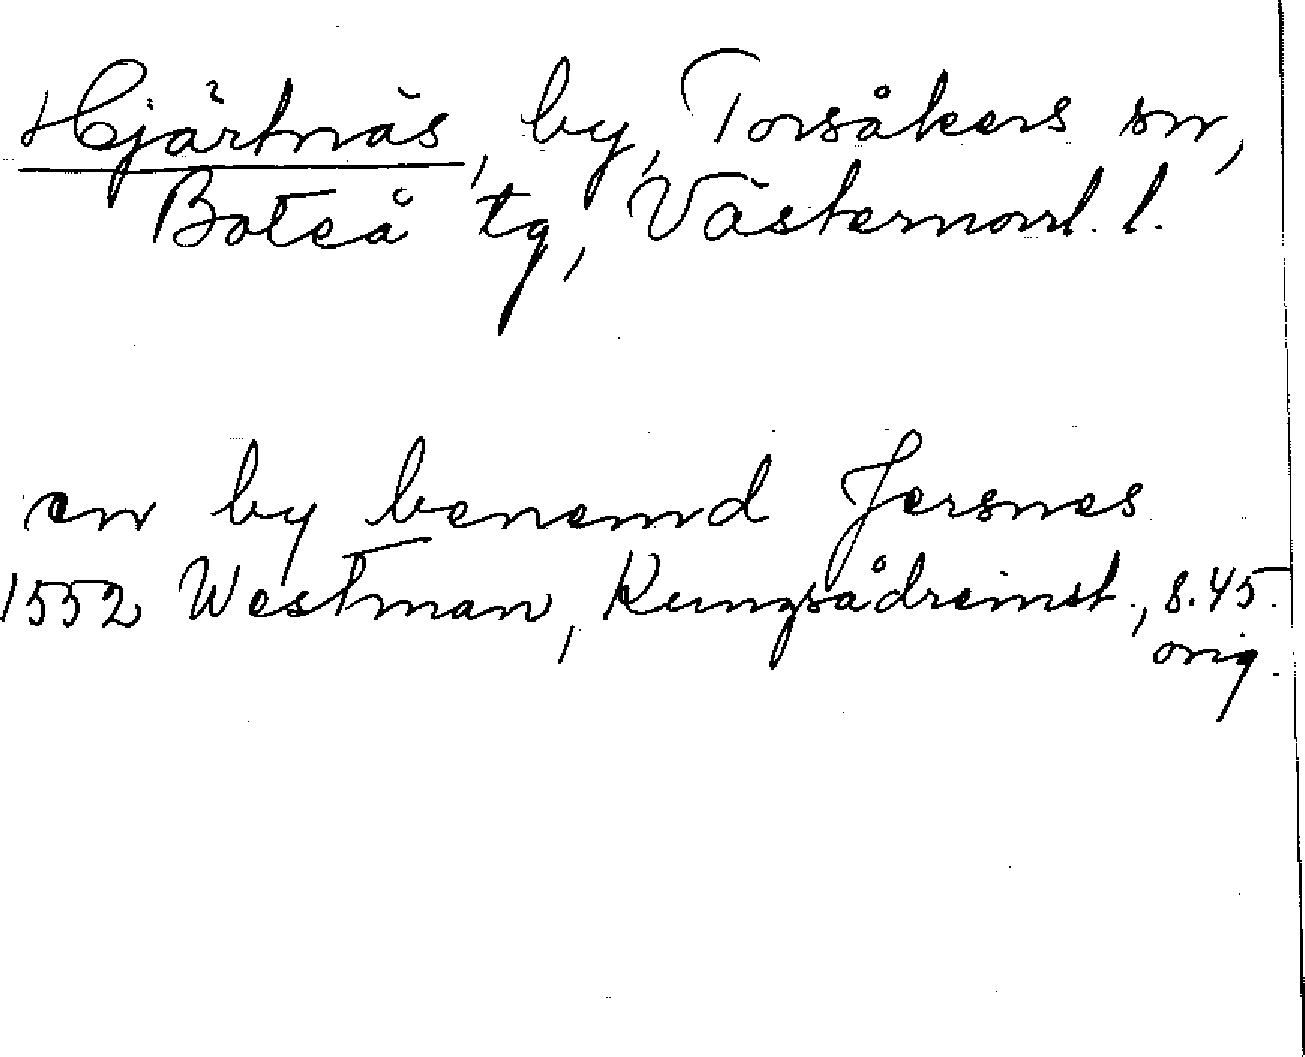 Hjärtnäs, by, Torsåkers sn,
Boteå tg, Västernorrl. l.
en by benemd Jersnes
1552 Westman, Kungsådreinst., s. 45.
orig.